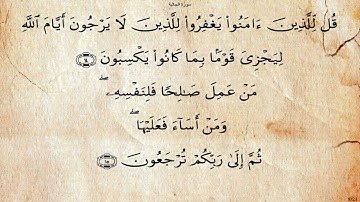 سورة الجاثية
قُل لِّلَّذِينَ ءَامَنُوا۟ يَغْفِرُوا۟ لِلَّذِينَ لَا يَرْجُونَ أَيَّامَ ٱللَّهِ
لِيَجْزِىَ قَوْمًۢا بِمَا كَانُوا۟ يَكْسِبُونَ ١٤
مَنْ عَمِلَ صَـٰلِحًا فَلِنَفْسِهِۦ ۖ
وَمَنْ أَسَآءَ فَعَلَيْهَا ۖ
ثُمَّ إِلَىٰ رَبِّكُمْ تُرْجَعُونَ ١٥